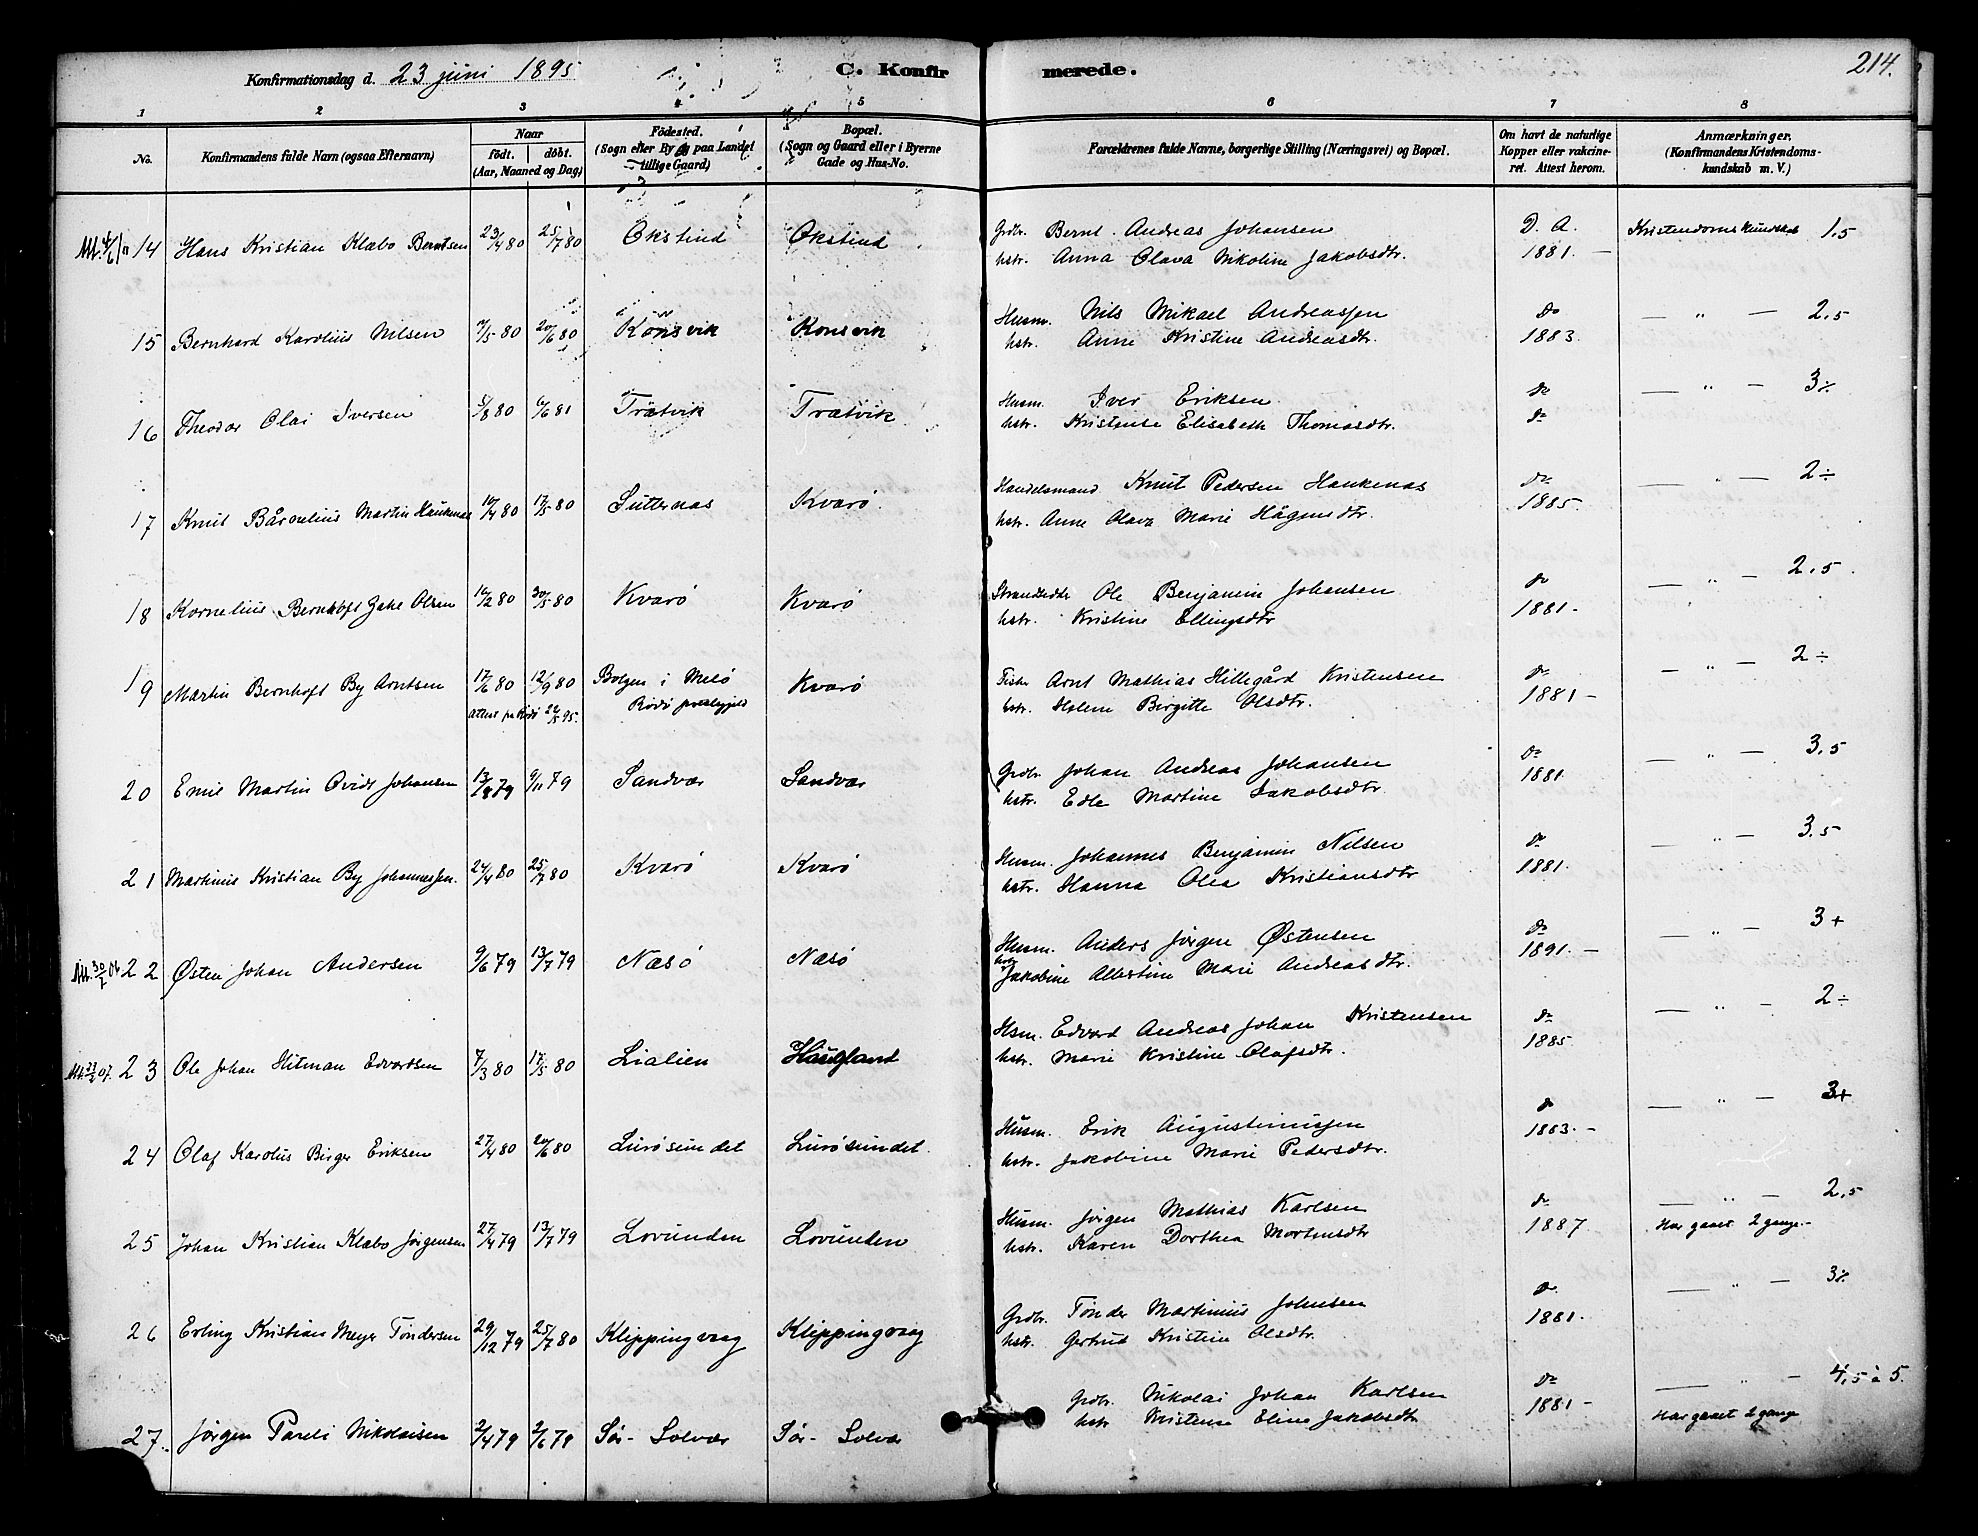 Konfirmationsdag d. 23 juni 1895
C. Konfirmerede.
214.
1 2 3 4 5 6 7 8
No.
Konfirmandens fulde Navn (ogsaa Efternavn)
Naar
födt. döbt.
(Aar, Maaned og Dag)
Födested.
(Sogn eller By og paa Landet
tillige Gaard)
Bopæl.
(Sogn og Gaard eller i Byerne
Gade og Hus-No.
Forældrenes fulde Navne, borgerlige Stilling (Næringsvei) og Bopæl.
Om havt de naturlige
Kopper eller vakcine-
ret. Attest herom.
Anmærkninger.
(Konfirmandens Kristendoms-
kundskab m. V.)
14 Hans Kristian Klæbo Berntsen 23/4 80 25/7 80 Økstind Økstind Grdbr. Bernt Andreas Johansen D. A. Kristendomskundskab 1.5
hstr. Anna Olava Nikoline Jakobsdtr. 1881. —
15 Bernhard Karolius Nilsen 80 20/6 80 Konsvik Konsvik Husm. Nils Mikael Andreassen do — " — 2.5
hstr. Anne Kristine Andreasdtr. 1883.
16 Theodor Olai Iversen 5/8 80 6/6 81 Trætvik Trætvik Husm. Iver Eriksen do — " — 3%
hstr. Kristense Elisabeth Thomasdtr. do
17 Knut Martin Haukenæs 80 17/5 80 Sutternæs Kvarø. Handelsmand Knut Pedersen Haukenæs do — " — 2÷
hstr. Anne Olava Marie Hågensdtr. 1885.
18 Kornelius Bernhoft Olsen 16/2 80 30/5 80 Kvarø Kvarø Ole Benjamin Johansen do — " — 2.5.
hstr. Kristine Ellingsdtr 1881.-
19 Martin Bernhoft By Arntsen 17/6 80 12/9 80 Bolgen i Melø Kvarø Fisker Arnt Mathias Hillegård Kristensen do — " — 2÷
Attest pr Rødø 95. Rødø præstegjeld hstr. Helene Birgitte Olsdtr. 1881 -
20 Emil Martin Ovidr Johansen 13/8 79 9/11 79 Sandvær Sandvær Grdbr. Johan Andreas Johansen do — " — 3.5
hstr. Edle Martine Jakobsdtr. 1881.
21 Martinus Kristian By Johannessen. 24/4 80 25/7 80 Kvarø Kvarø Husm. Johannes Benjamin Nilsen do " — 3.5
hstr. Hanna Olea Kristiansdtr 1881.
22 Østen Johan Andersen 9/6 79 13/7 79 Næsø Næsø Husm. Anders Jørgen Østensen do — " — 3+
hstr. Jakobine Albertine Marie Andreasdtr. 1891. —
23 Ole Johan Hitman Edvardsen 7/3 80 17/5 80 Lialien Haugland Hsm. Edvard Andreas Johan Kristensen do — " — 2÷
hstr. Marie Kristine Olafsdtr. 1885
24 Olaf Karolus Birger Eriksen 27/4 80 20/6 80 Lurøsundet Lurøsundet. Husm. Erik Augustinussen do — " — 3+
hstr. Jakobine Marie Pedersdtr. 1883. -
25 Johan Kristian Klæbo Jørgensen 27/4 79 13/7 79 Lovunden Lovunden Husm. Jørgen Mathias Karlsen do — " — 2.5
hstr. Karen Dorthea Mortensdtr 1887. Har gaaet 2 gange.-
26 Erling Kristian Meyer Tøndersen 29/12 79 25/7 80 Klippingvaag Klippingvaag Grdbr. Tønder Martinius Johnsen do — " — 3%
hstr. Gertrud Kristine Olsdtr. 1881.
27. Jørgen Pareli Nikolaisen 2/4 79 2/6 79 Sør-Solvær Sør-Solvær Grdbr. Nikolai Johan Karlsen do — " — 4,5 à 5.
hstr Kristense Eline Jakobsdtr 1881 - Har gaaet 2 gange